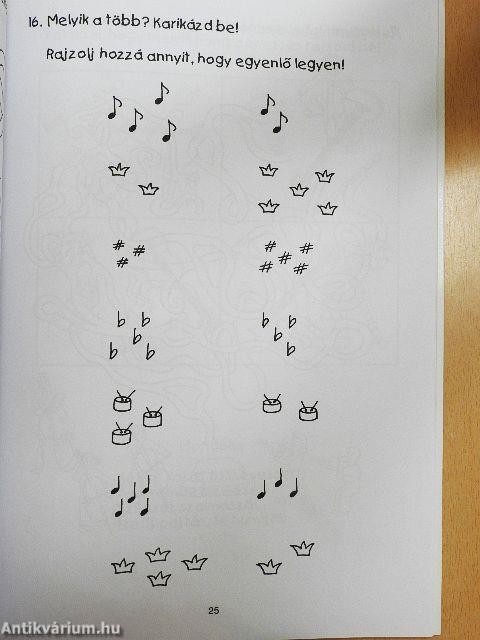 16. Melyik a több? Karikázd be!
Rajzolj hozzá annyit, hogy egyenlő legyen!
25
Antikvárium.hu